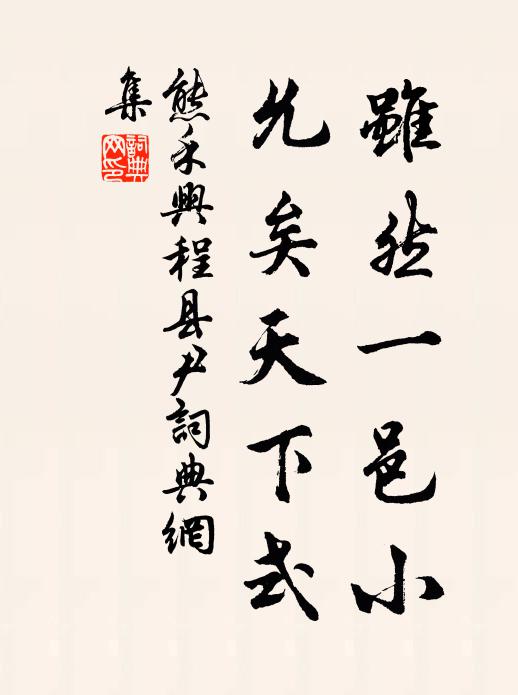 雖然一邑小
允矣天下式
熊禾興程县尹詞典網
集
詞典網印